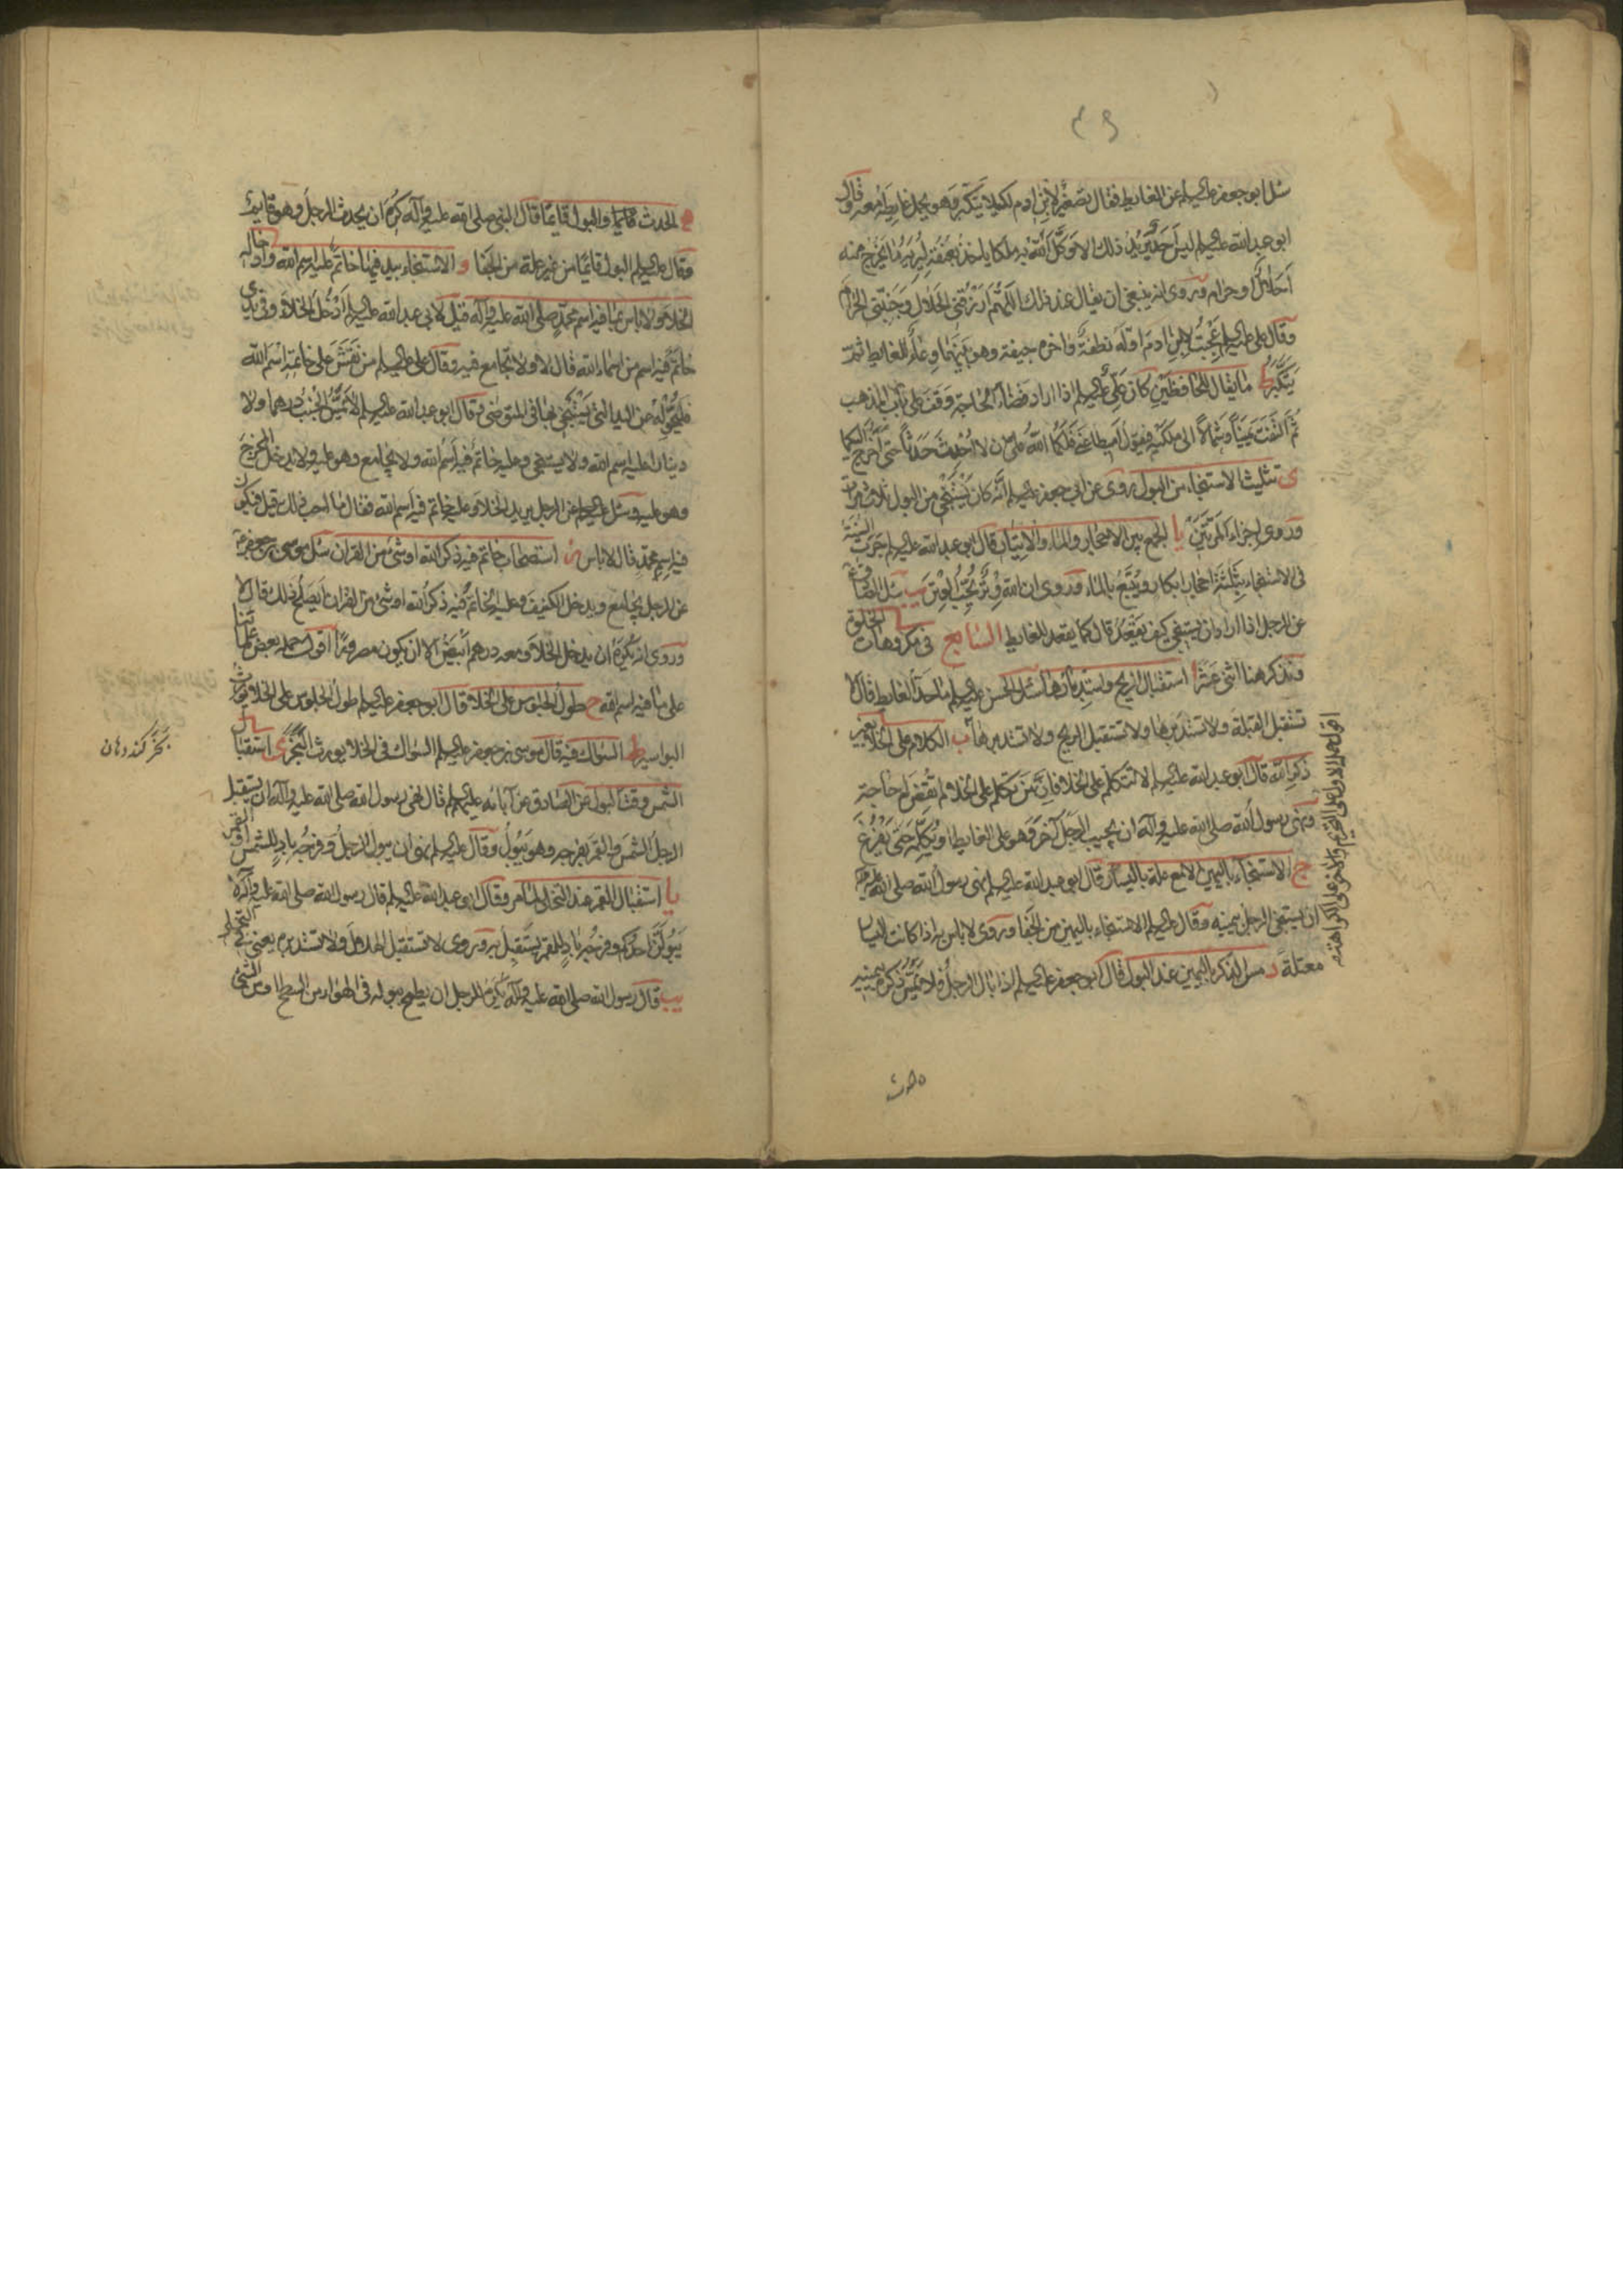 سئل ابو جعفر عليه السلم عن الغايط فقال تصغير لابن ادم لكيلا يتكبر وهو يحمل غايطه معه وقال
ابو عبد الله عليه السلم ليس احد يريد ذلك الا وكل الله به ملكا ياخذ بعنقه ليريه ما يخرج منه
احلال او حرام وروى انه ينبغى ان يقال عند ذلك اللهم ارزقنى الحلال وجنبنى الحرام
وقال على عليه السلم عجبت لابن ادم اوله نطفة واخره جيفة وهو بينهما وعاء للغايط ثم
يتكبر ط ما يقال للحافظين كان على عليه السلم اذا اراد قضاء الحاجة وقف على باب المذهب
ثم التفت يمينا وشمالا الى ملكيه فيقول اميطا عنى فلكما الله على ان لا احدث حدثا حتى اخرج اليكما
ى تثليث الاستنجاء من البول روى عن ابى جعفر عليه السلم انه كان يستنجى من البول ثلاث مرات
وروى اجزاء المرتين يا الجمع بين الاحجار والماء والايتار قال ابو عبد الله عليه السلم جرت السنة
فى الاستنجاء بثلثة احجار ابكار ويتبع بالماء وروى ان الله وتر يحب الوتر يب سئل الصادق ع
عن الرجل اذا اراد ان يستنجى كيف يقعد قال كما يقعد للغايط السابع فى مكروهات الخلوة
ونذكر هنا اثنى عشر ا استقبال الريح واستدبارها سئل الحسن عليه السلم ما حد الغايط قال لا
تستقبل القبلة ولا تستدبرها ولا تستقبل الريح ولا تستدبرها ب الكلام على الخلا بغير
ذكر الله قال ابو عبد الله عليه السلم لا تتكلم على الخلا فان من تكلم على الخلا لم تقض له حاجة
ونهى رسول الله صلى الله عليه وآله ان يجيب الرجل آخر وهو على الغايط او يكلمه حتى يفرغ
ج الاستنجاء باليمين الا مع علة باليسار قال ابو عبد الله عليه السلم نهى رسول الله صلى الله عليه وآله
ان يستنجى الرجل بيمينه وقال عليه السلم الاستنجاء باليمين من الجفا وروى لا باس به اذا كانت اليسار
معتلة د مس الذكر باليمين عند البول قال ابو جعفر عليه السلم اذا بال الرجل فلا يمس ذكره بيمينه
ه الحدث قائما والبول قائما قال النبى صلى الله عليه وآله كره ان يحدث الرجل وهو قايم
وقال عليه السلم البول قائما من غير علة من الجفا و الاستنجاء بيد فيها خاتم عليه اسم الله وادخاله
الخلا ولا باس بما فيه اسم محمد صلى الله عليه وآله قيل لابى عبد الله عليه السلم ادخل الخلا وفى يدى
خاتم فيه اسم من اسماء الله قال لا ولا تجامع فيه وقال على عليه السلم من نقش على خاتمه اسم الله
فليحوله عن اليد التى يستنجى بها فى المتوضى وقال ابو عبد الله عليه السلم لا يمس الجنب درهما ولا
دينارا عليه اسم الله ولا يستنجى وعليه خاتم فيه اسم الله ولا يجامع وهو عليه ولا يدخل المخرج
وهو عليه وسئل عليه السلم عن الرجل يريد الخلا وعليه خاتم فيه اسم الله فقال ما احب ذلك قيل فيكون
فيه اسم محمد قال لا باس ز استصحاب خاتم فيه ذكر الله او شئ من القران سئل موسى بن جعفر ع
عن الرجل يجامع ويدخل الكنيف وعليه الخاتم فيه ذكر الله او شئ من القران ايصلح ذلك قال لا
وروى انه يكره ان يدخل الخلا ومعه درهم ابيض الا ان يكون مصرورا اقول حمله بعض علمائنا
على ما فيه اسم الله ح طول الجلوس على الخلا قال ابو جعفر عليه السلم طول الجلوس على الخلا يورث
البواسير ط السواك فيه قال موسى بن جعفر عليه السلم السواك فى الخلا يورث البخر ى استقبال
الشمس وقت البول عن الصادق عن آبائه عليهم السلم قال نهى رسول الله صلى الله عليه وآله ان يستقبل
الرجل الشمس والقمر بفرجه وهو يبول وقال عليه السلم نهى ان يبول الرجل وفرجه باد للشمس او القمر
يا استقبال القمر عند التخلى لما مر وقال ابو عبد الله عليه السلم قال رسول الله صلى الله عليه وآله لا
يبولن احدكم وفرجه باد للقمر يستقبل به وروى لا تستقبل الهلال ولا تستدبره يعنى فى التخلى
يب قال رسول الله صلى الله عليه وآله يكره للرجل ان يطمح ببوله فى الهواء من السطح او من الشئ
بخر گند دهان